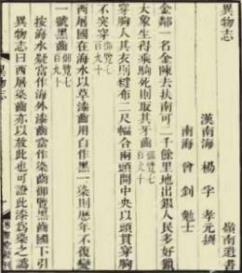 異物志 嶺南遺書
漢南海 楊 孚 孝元撰
南海 曾 釗 勉士
金鄰一名金陳去扶南可二千餘里地出銀人民多好獵
大象生得乘騎死則取其牙齒御覽七百九十
穿胸人其衣則縫布二尺幅合兩頭開中央以頭貫穿胸
不突穿御覽七百九十
西屠國在海水以草漆齒用白作黑一染則歷年不復變
一號黑齒御覽七百九十
按海水疑當作海外漆齒當作染齒御覽黑齒國下引
異物志曰西屠染齒亦以放此也可證此漆爲染之譌
異物志